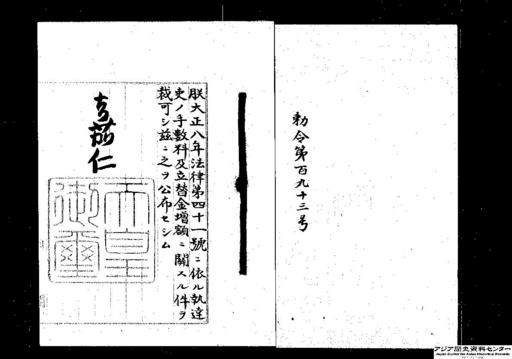 勅令第百九十三号
朕大正八年法律第四十一號ニ依ル執達
吏ノ手數料及立替金增額ニ關スル件ヲ
裁可シ茲ニ之ヲ公布セシム
嘉仁
天皇御璽
アジア歴史資料センター
Japan Center for Asian Historical Records